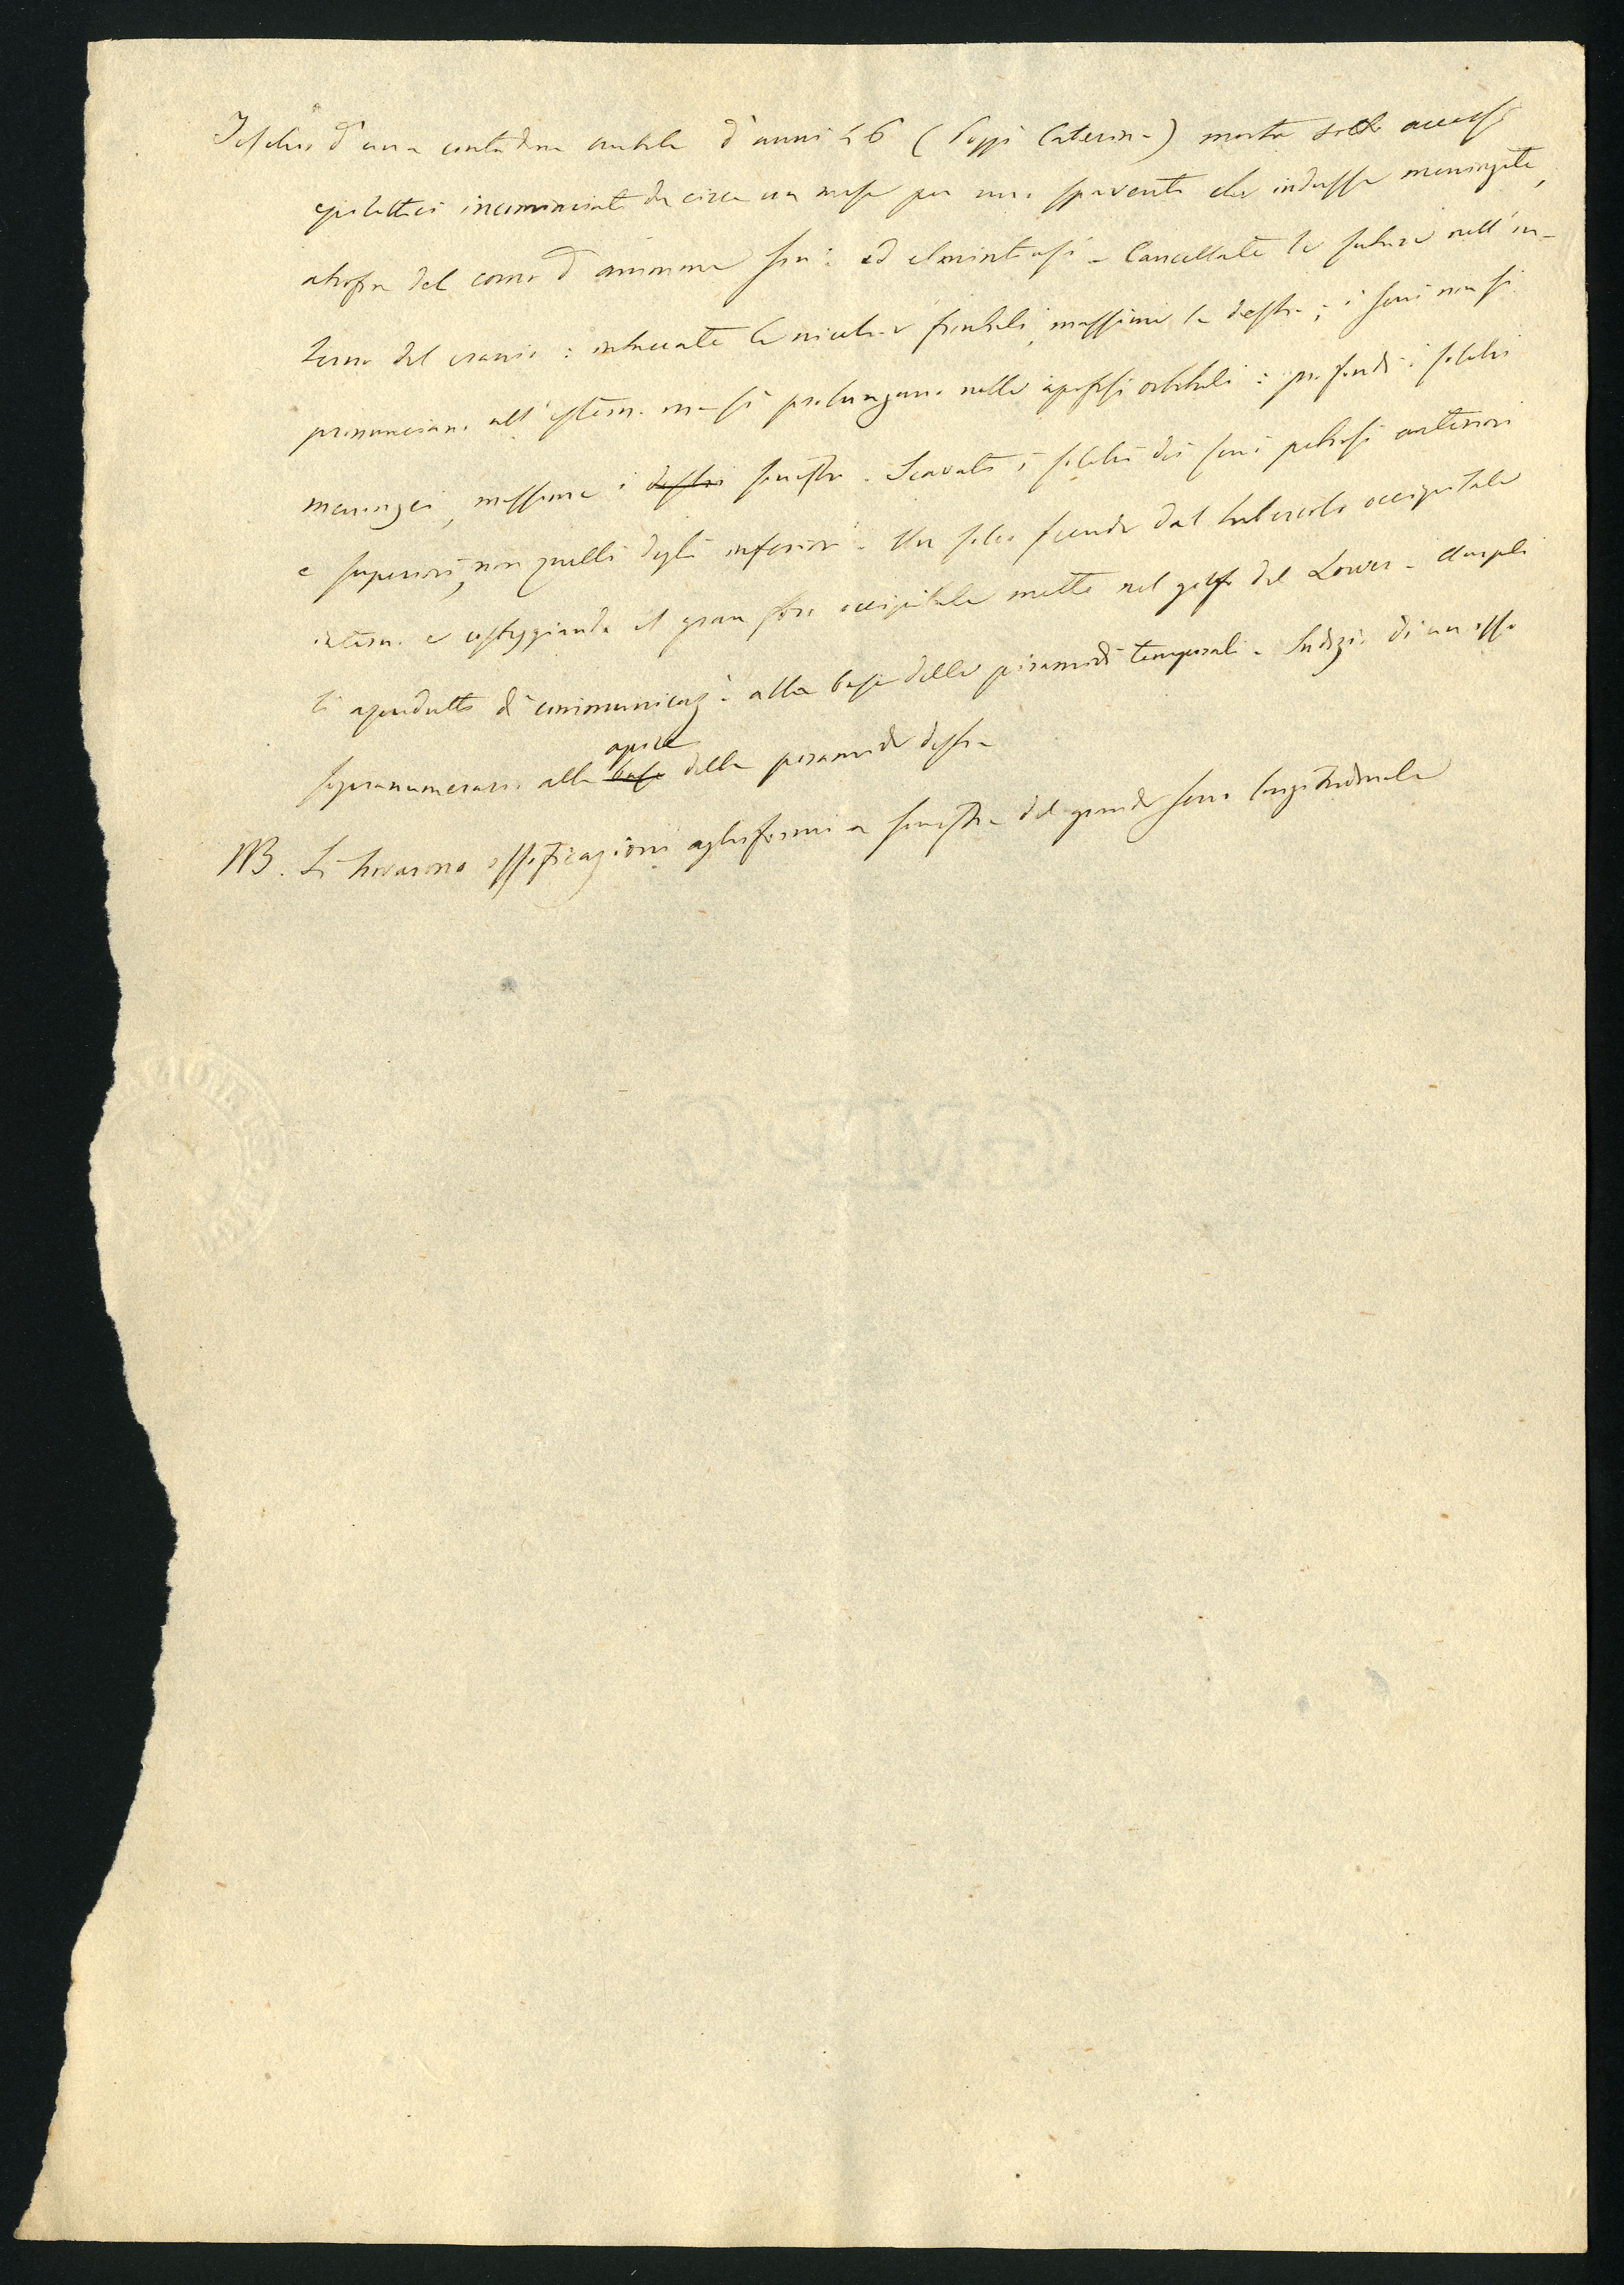 Teschio d'una contadina nubile d'anni 46 (Poggi Caterina) morta sotto accessi
epilettici incominciati da circa un mese per uno spavento che indusse meningite,
atrofia del corno d'ammone sin: ed elmintiasi - Cancellate le suture nell'in-
terno del cranio: intaccate le nicchie frontali, massime la destra; i seni non si
pronunciano all'esterno ma si prolungano nelle apofisi orbitali: profondi i solchi
meningei, massime i destri sinistri. Scavati i solchi dei seni petrosi anteriori
e superiori, non quelli degli inferiori. Un solco scende dal tubercolo occipitale
interno e costeggiando il gran foro occipitale mette nel golfo del Lower - Ampli
li aquedutti di comunicaz: alla base delle piramidi temporali - Indizio di un osso
apice
sopranumerario alla base della piramide destra
NB. Si trovarono ossificazioni a sinistra del grande seno longitudinale